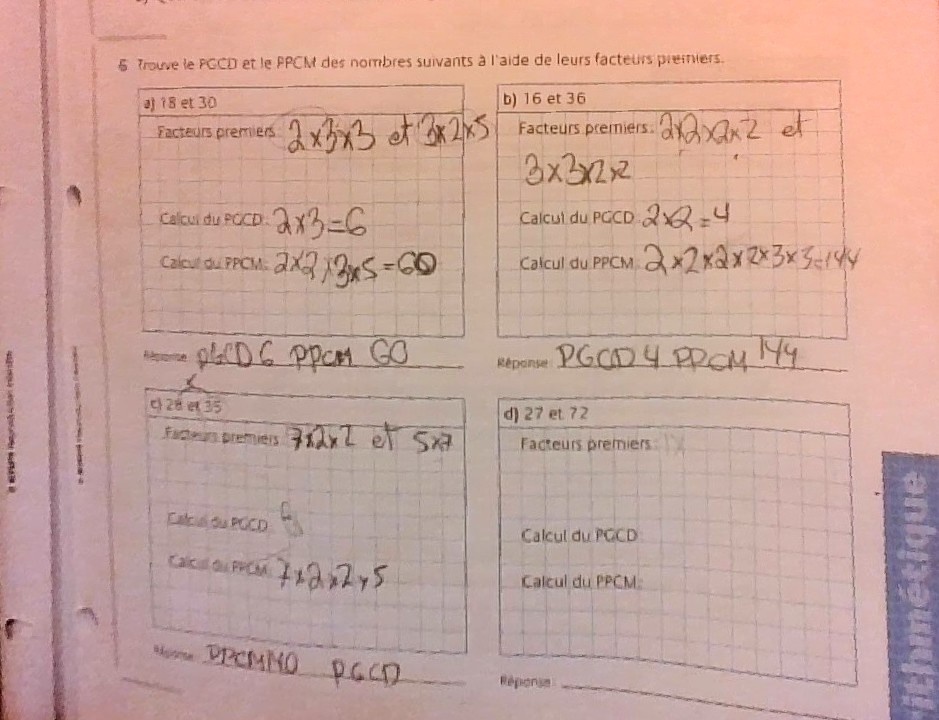 6 Trouve le PGCD et le PPCM des nombres suivants à l'aide de leurs facteurs premiers.
a) 18 et 30
Facteurs premiers: 2x3x3 et 3x2x5
Calcul du PGCD: 2x3=6
Calcul du PPCM: 2x2x3x5=60
Réponse PGCD 6 PPCM 60
b) 16 et 36
Facteurs premiers: 2x2x2x2 et
3x3x2x2
Calcul du PGCD 2x2=4
Calcul du PPCM 2x2x2x2x3x3=144
Réponse PGCD 4 PPCM 144
c) 28 et 35
Facteurs premiers 7x2x2 et 5x7
Calcul du PGCD
Calcul du PPCM 7x2x2x5
Réponse PPCM 140 PGCD
d) 27 et 72
Facteurs premiers
Calcul du PGCD
Calcul du PPCM:
Réponse:
ithmétique